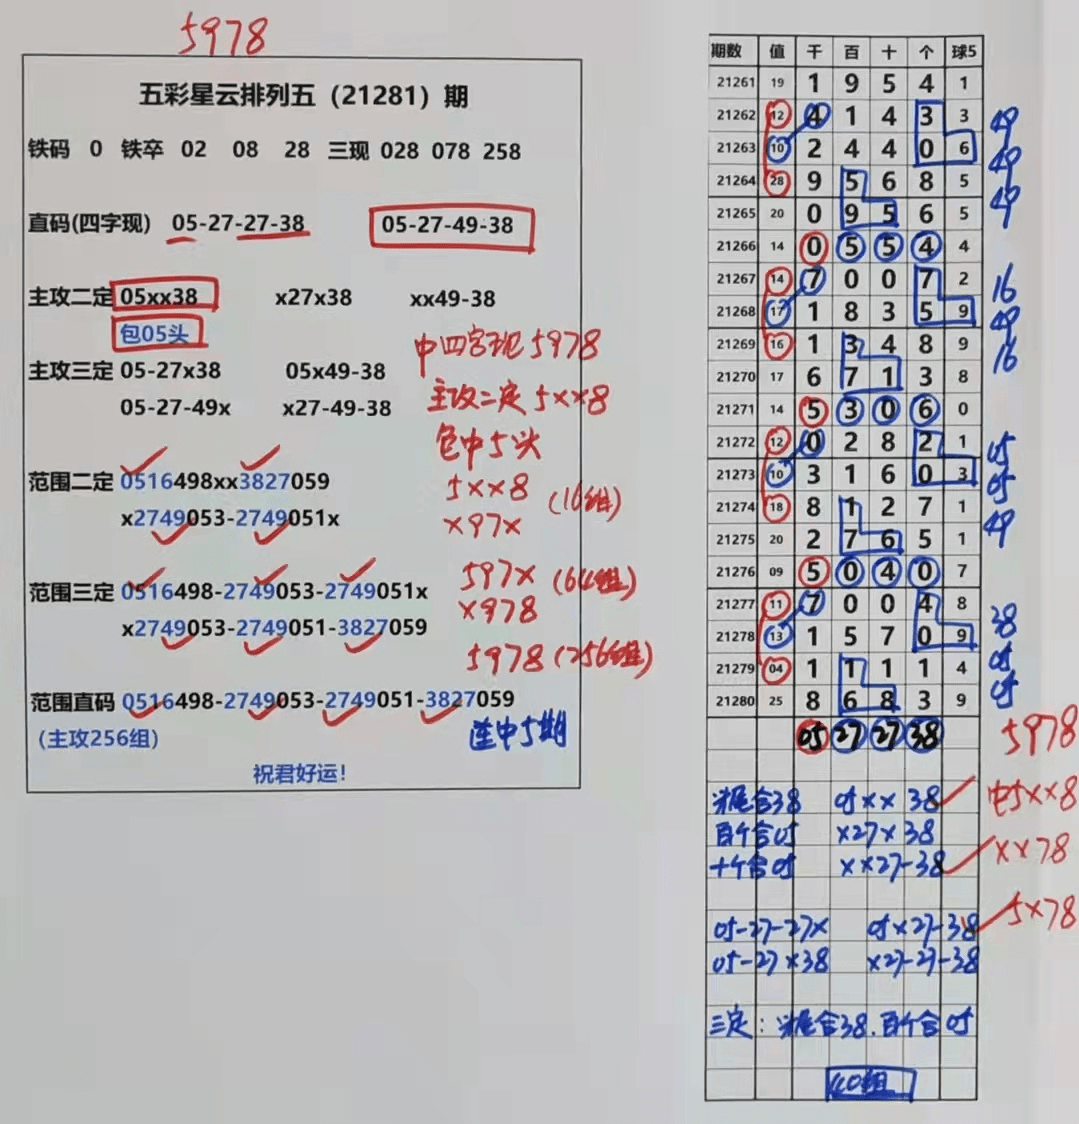 5978
五彩星云排列五（21281）期
铁码 0 铁卒 02 08 28 三现 028 078 258
直码(四字现) 05-27-27-38 05-27-49-38
主攻二定 05xx38 x27x38 xx49-38
包05头
主攻三定 05-27x38 05x49-38
05-27-49x x27-49-38
中四字现5978
主攻二定5××8
包中5头
范围二定 0516498xx3827059
x2749053-2749051x
5××8
×97×
(16组)
范围三定 0516498-2749053-2749051x
x2749053-2749051-3827059
597× (64组)
×978
5978 (256组)
范围直码 0516498-2749053-2749051-3827059
(主攻256组)
连中5期
祝君好运!
期数 值 千 百 十 个 球5
21261 19 1 9 5 4 1
21262 12 4 1 4 3 3 49
21263 10 2 4 4 0 6 49
21264 28 9 5 6 8 5 49
21265 20 0 9 5 6 5
21266 14 0 5 5 4 4
21267 14 7 0 0 7 2 16
21268 17 1 8 3 5 9 49
21269 16 1 3 4 8 9 16
21270 17 6 7 1 3 8
21271 14 5 3 0 6 0
21272 12 0 2 8 2 1 05
21273 10 3 1 6 0 3 05
21274 18 8 1 2 7 1 49
21275 20 2 7 6 5 1
21276 09 5 0 4 0 7
21277 11 7 0 0 4 8 38
21278 13 1 5 7 0 9 05
21279 04 1 1 1 1 4 05
21280 25 8 6 8 3 9
05 27 27 38 5978
尾合38 05×× 38 中5××8
百个合05 ×27×38
十个合05 ××27-38 ××78
05-27-27× 05×27-38 5×78
05-27×38 ×27-27-38
三定：尾合38.百个合05
40组